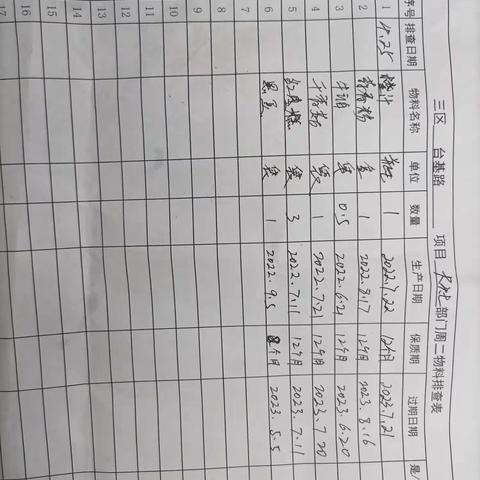 三区 台基路 项目 部门周二物料排查表
序号 排查日期 物料名称 单位 数量 生产日期 保质期 过期日期 是/
1 4.25 橙汁 瓶 1 2022.7.22 12个月 2023.7.21
2 1 2022.8.17 12个月 2023.8.16
3 牛油 0.5 2022.6.21 12个月 2023.6.20
4 袋 1 2022.7.21 12个月 2023.7.20
5 红豆糕 袋 3 2022.7.11 12个月 2023.7.11
6 袋 1 2022.9.5 8个月 2023.5.5
7
8
9
10
11
12
13
14
15
16
17